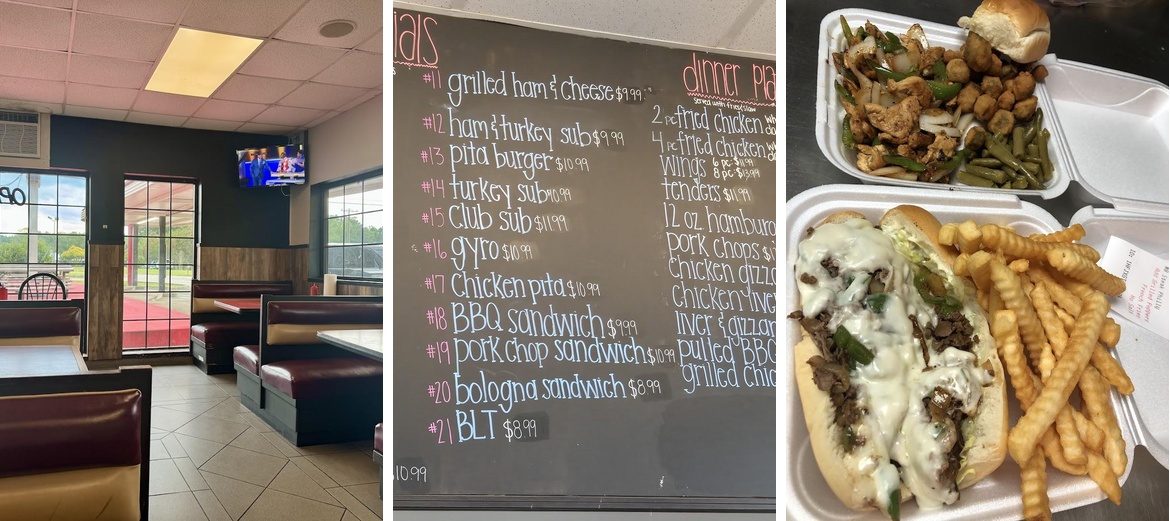 OP
ials
#11 grilled ham & cheese $9.99
#12 ham & turkey sub $9.99
#13 pita burger $10.99
#14 turkey sub $10.99
#15 club sub $11.99
#16 gyro $10.99
#17 Chicken pita $10.99
#18 BBQ sandwich $9.99
#19 pork chop sandwich $10.99
#20 bologna sandwich $8.99
#21 BLT $8.99
10.99
dinner pla
served with fries/slaw
2 pc fried chicken
4 pc fried chicken
wings 6 pc-$11.99
8 pc-$13.99
tenders $11.99
12 oz hamburg
pork chops $1
Chicken gizza
Chicken live
liver & gizzar
pulled BBQ
grilled chic